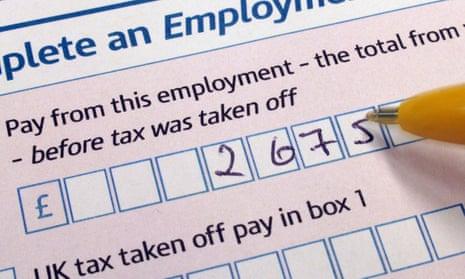 plete an Employme
Pay from this employment – the total from
– before tax was taken off
£ 2675
UK tax taken off pay in box 1